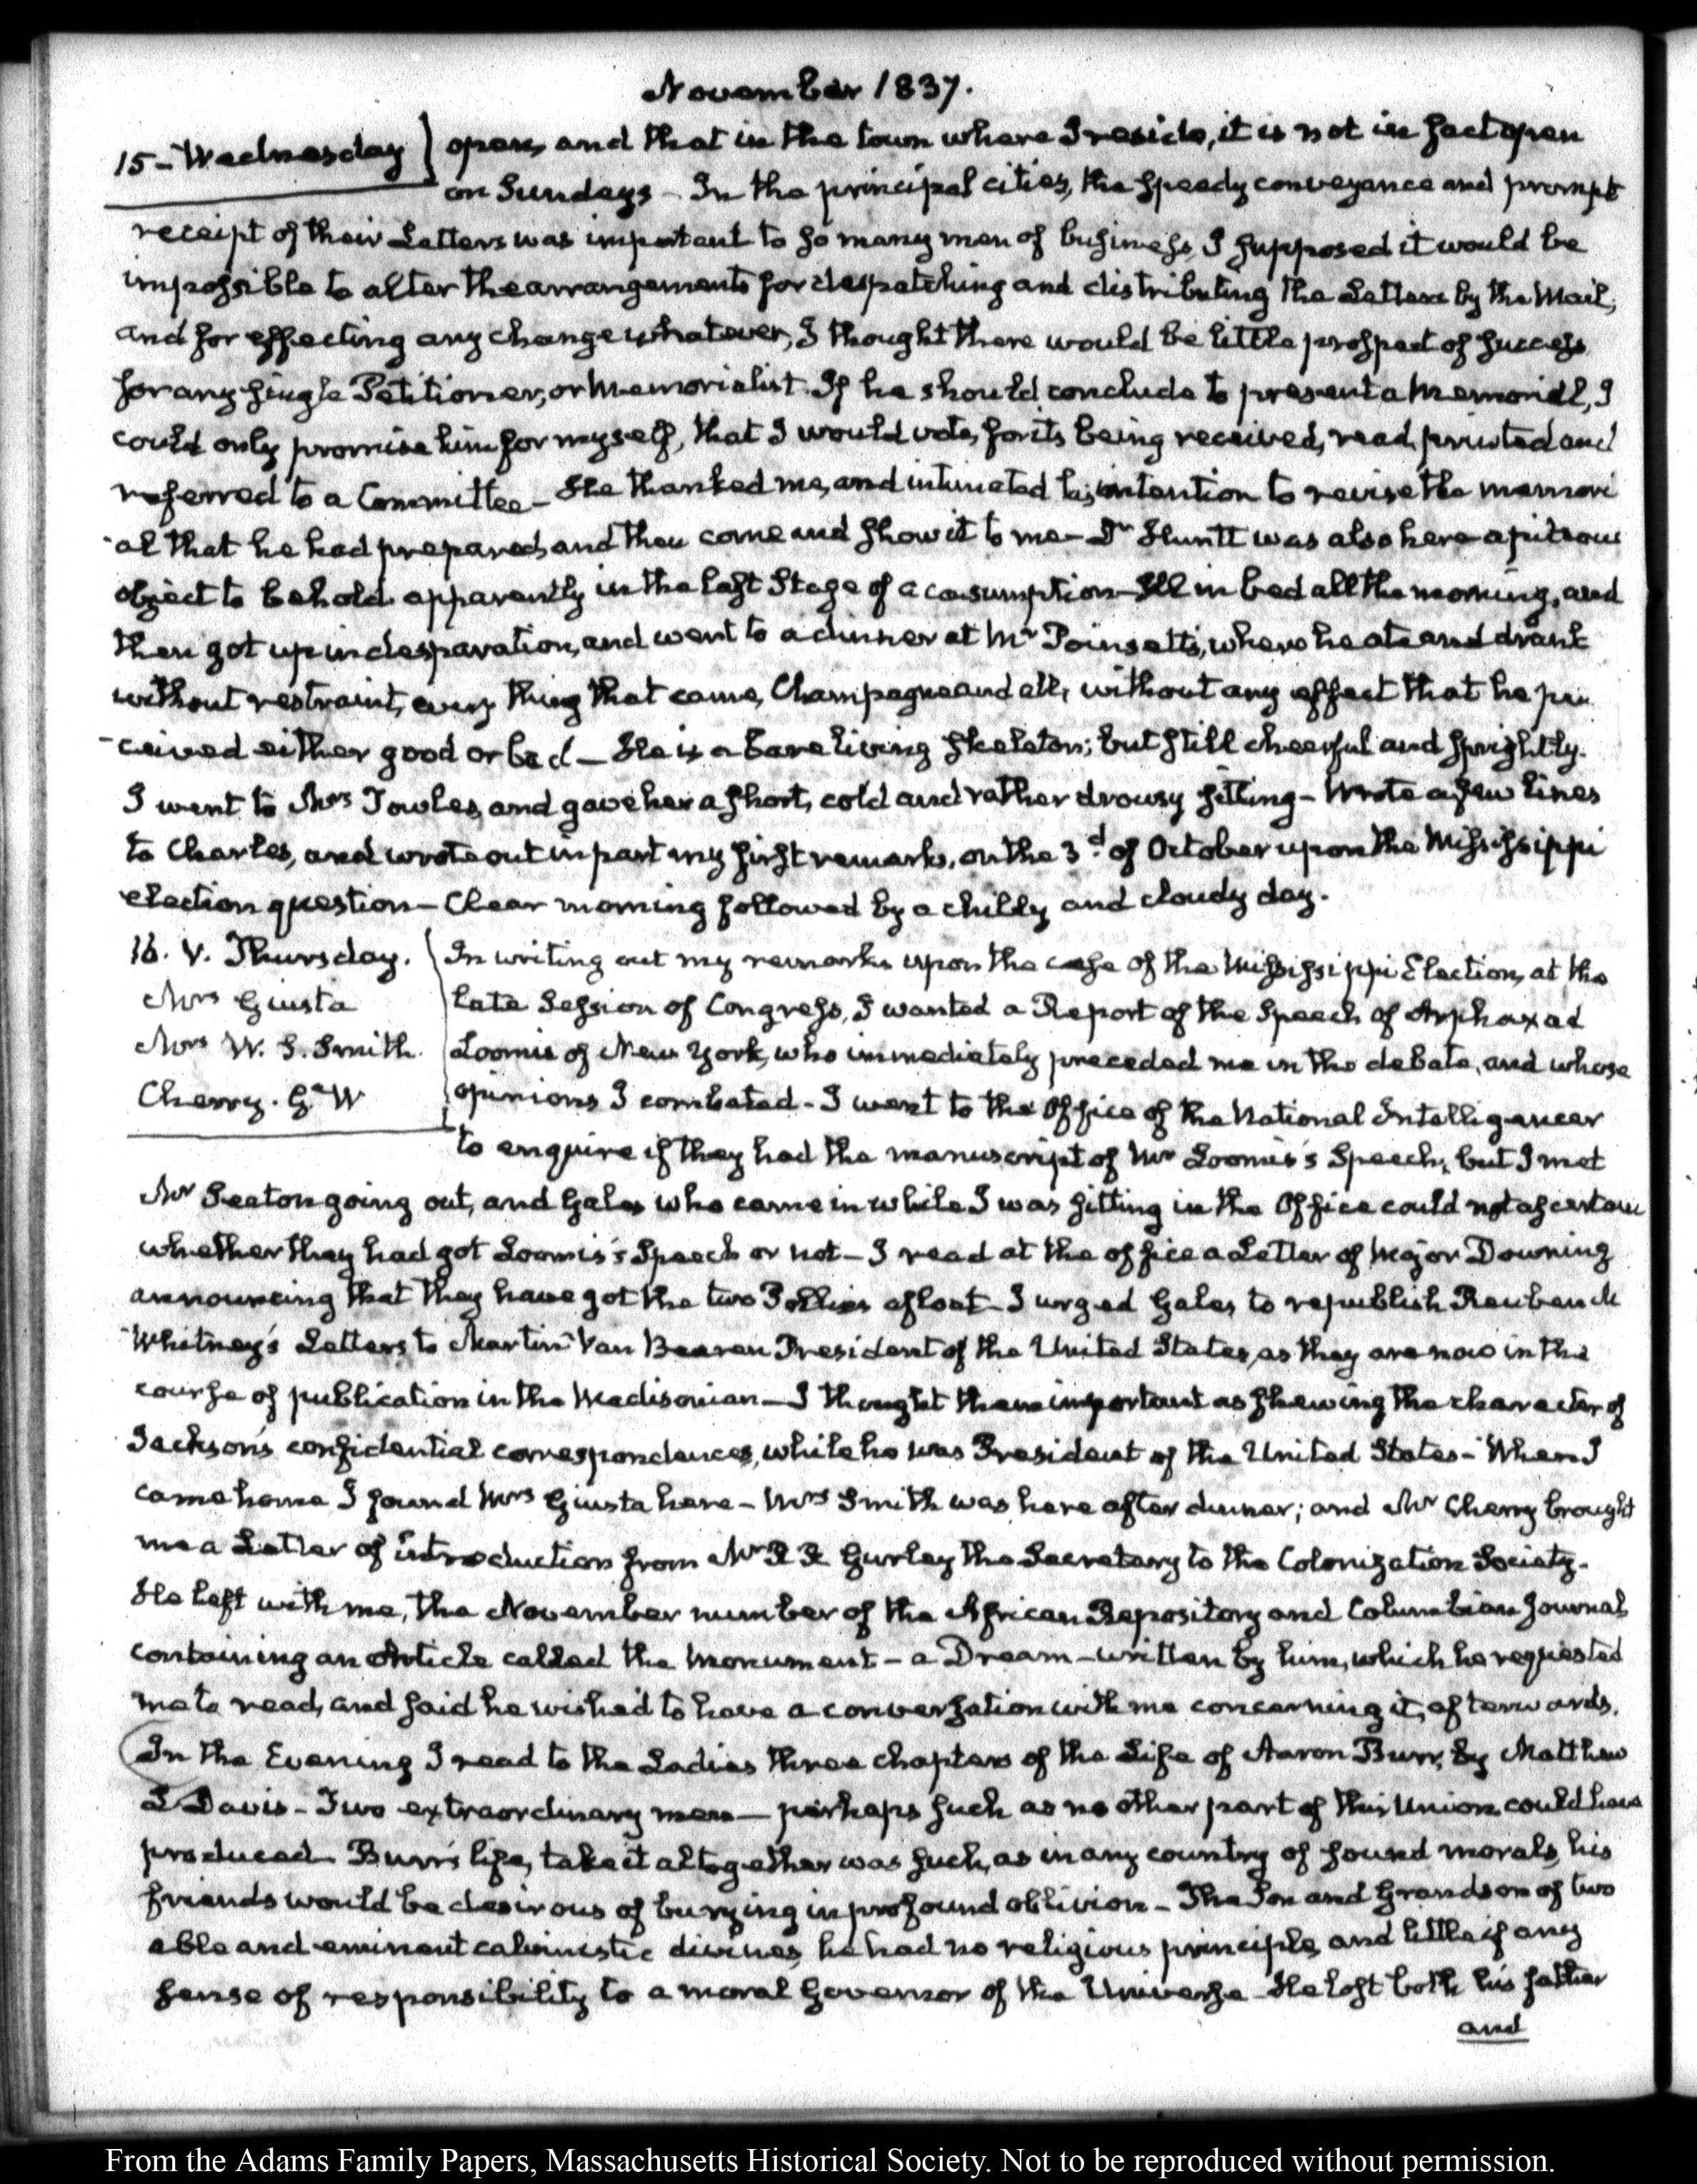 November 1837.
15 - Wednesday
open, and that in the town where I reside, it is not in fact open
on Sundays - In the principal cities, the speedy conveyance and prompt
receipt of their Letters was important to so many men of business, I supposed it would be
impossible to alter the arrangements for despatching and distributing the Letters by the Mail;
and for effecting any change whatever, I thought there would be little prospect of success
for any single Petitioner, or Memorialist. If he should conclude to present a Memorial, I
could only promise him for myself, that I would vote, for its being received, read, printed and
referred to a Committee - He thanked me, and intimated his intention to revise the memori
-al that he had prepared, and then come and show it to me - Dr Huntt was also here a piteous
object to behold apparently in the last Stage of a consumption - Ill in bed all the morning, and
then got up in desparation, and went to a dinner at Mr Poinsett's, where he ate and drank
without restraint, every thing that came, Champagne and all, without any effect that he per
-ceived either good or bad - He is a bare living skeleton; but still cheerful and sprightly.
I went to Mrs Towles, and gave her a short, cold and rather drowsy sitting - Wrote a few lines
to Charles, and wrote out in part my first remarks, on the 3d of October upon the Mississippi
election question - Clear morning followed by a chilly and cloudy day.
16. V. Thursday.
Mrs Giusta
Mrs W. S. Smith.
Cherry. G. W
In writing out my remarks upon the case of the Mississippi Election, at the
late Session of Congress, I wanted a Report of the Speech of Arphaxad
Loomis of New York, who immediately preceded me in the debate, and whose
opinions I combated - I went to the Office of the National Intelligencer
to enquire if they had the manuscript of Mr Loomis's Speech, but I met
Mr Seaton going out, and Gales who came in while I was sitting in the Office could not ascertain
whether they had got Loomis's Speech or not - I read at the office a Letter of Major Downing
announcing that they have got the two Pollies afloat - I urged Gales, to republish Reuben M
Whitney's Letters to Martin Van Buren President of the United States, as they are now in the
course of publication in the Madisonian - I thought them important as shewing the character of
Jackson's confidential correspondences, while he was President of the United States - When I
came home I found Mrs Giusta here - Mrs Smith was here after dinner; and Mr Cherry brought
me a Letter of introduction from Mr R R Gurley the Secretary to the Colonization Society.
He left with me, the November number of the African Repository and Columbian Journal
containing an Article called the Monument - a Dream - written by him, which he requested
me to read, and said he wished to have a conversation with me concerning it, afterwards.
In the Evening I read to the Ladies three chapters of the Life of Aaron Burr, by Matthew
L Davis - Two extraordinary men - perhaps such as no other part of this Union could have
produced Burr's life, take it altogether was such, as in any country of sound morals, his
friends would be desirous of burying in profound oblivion - The Son and Grandson of two
able and eminent calvinistic divines, he had no religious principle, and little if any
sense of responsibility to a moral Governor of the Universe - He lost both his father
and
From the Adams Family Papers, Massachusetts Historical Society. Not to be reproduced without permission.